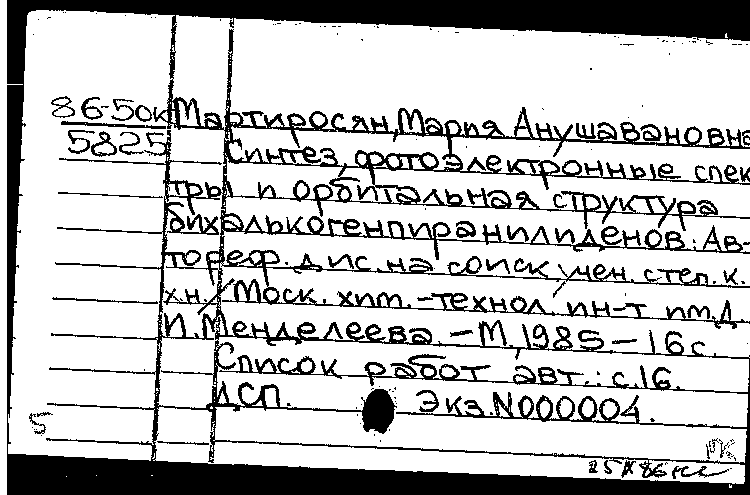 86-50к Мартиросян, Мария Анушавановна
5825 Синтез, фотоэлектронные спек-
тры и орбитальная структура
бихалькогенпиранилиденов: Ав-
тореф. дис. на соиск. учен. степ. к.
х.н. / Моск. хим.-технол. ин-т им. Д.
И. Менделеева. – М., 1985 – 16 с.
Список работ авт.: с. 16.
ДСП. Экз. N000004.
5
РК
25 X 86